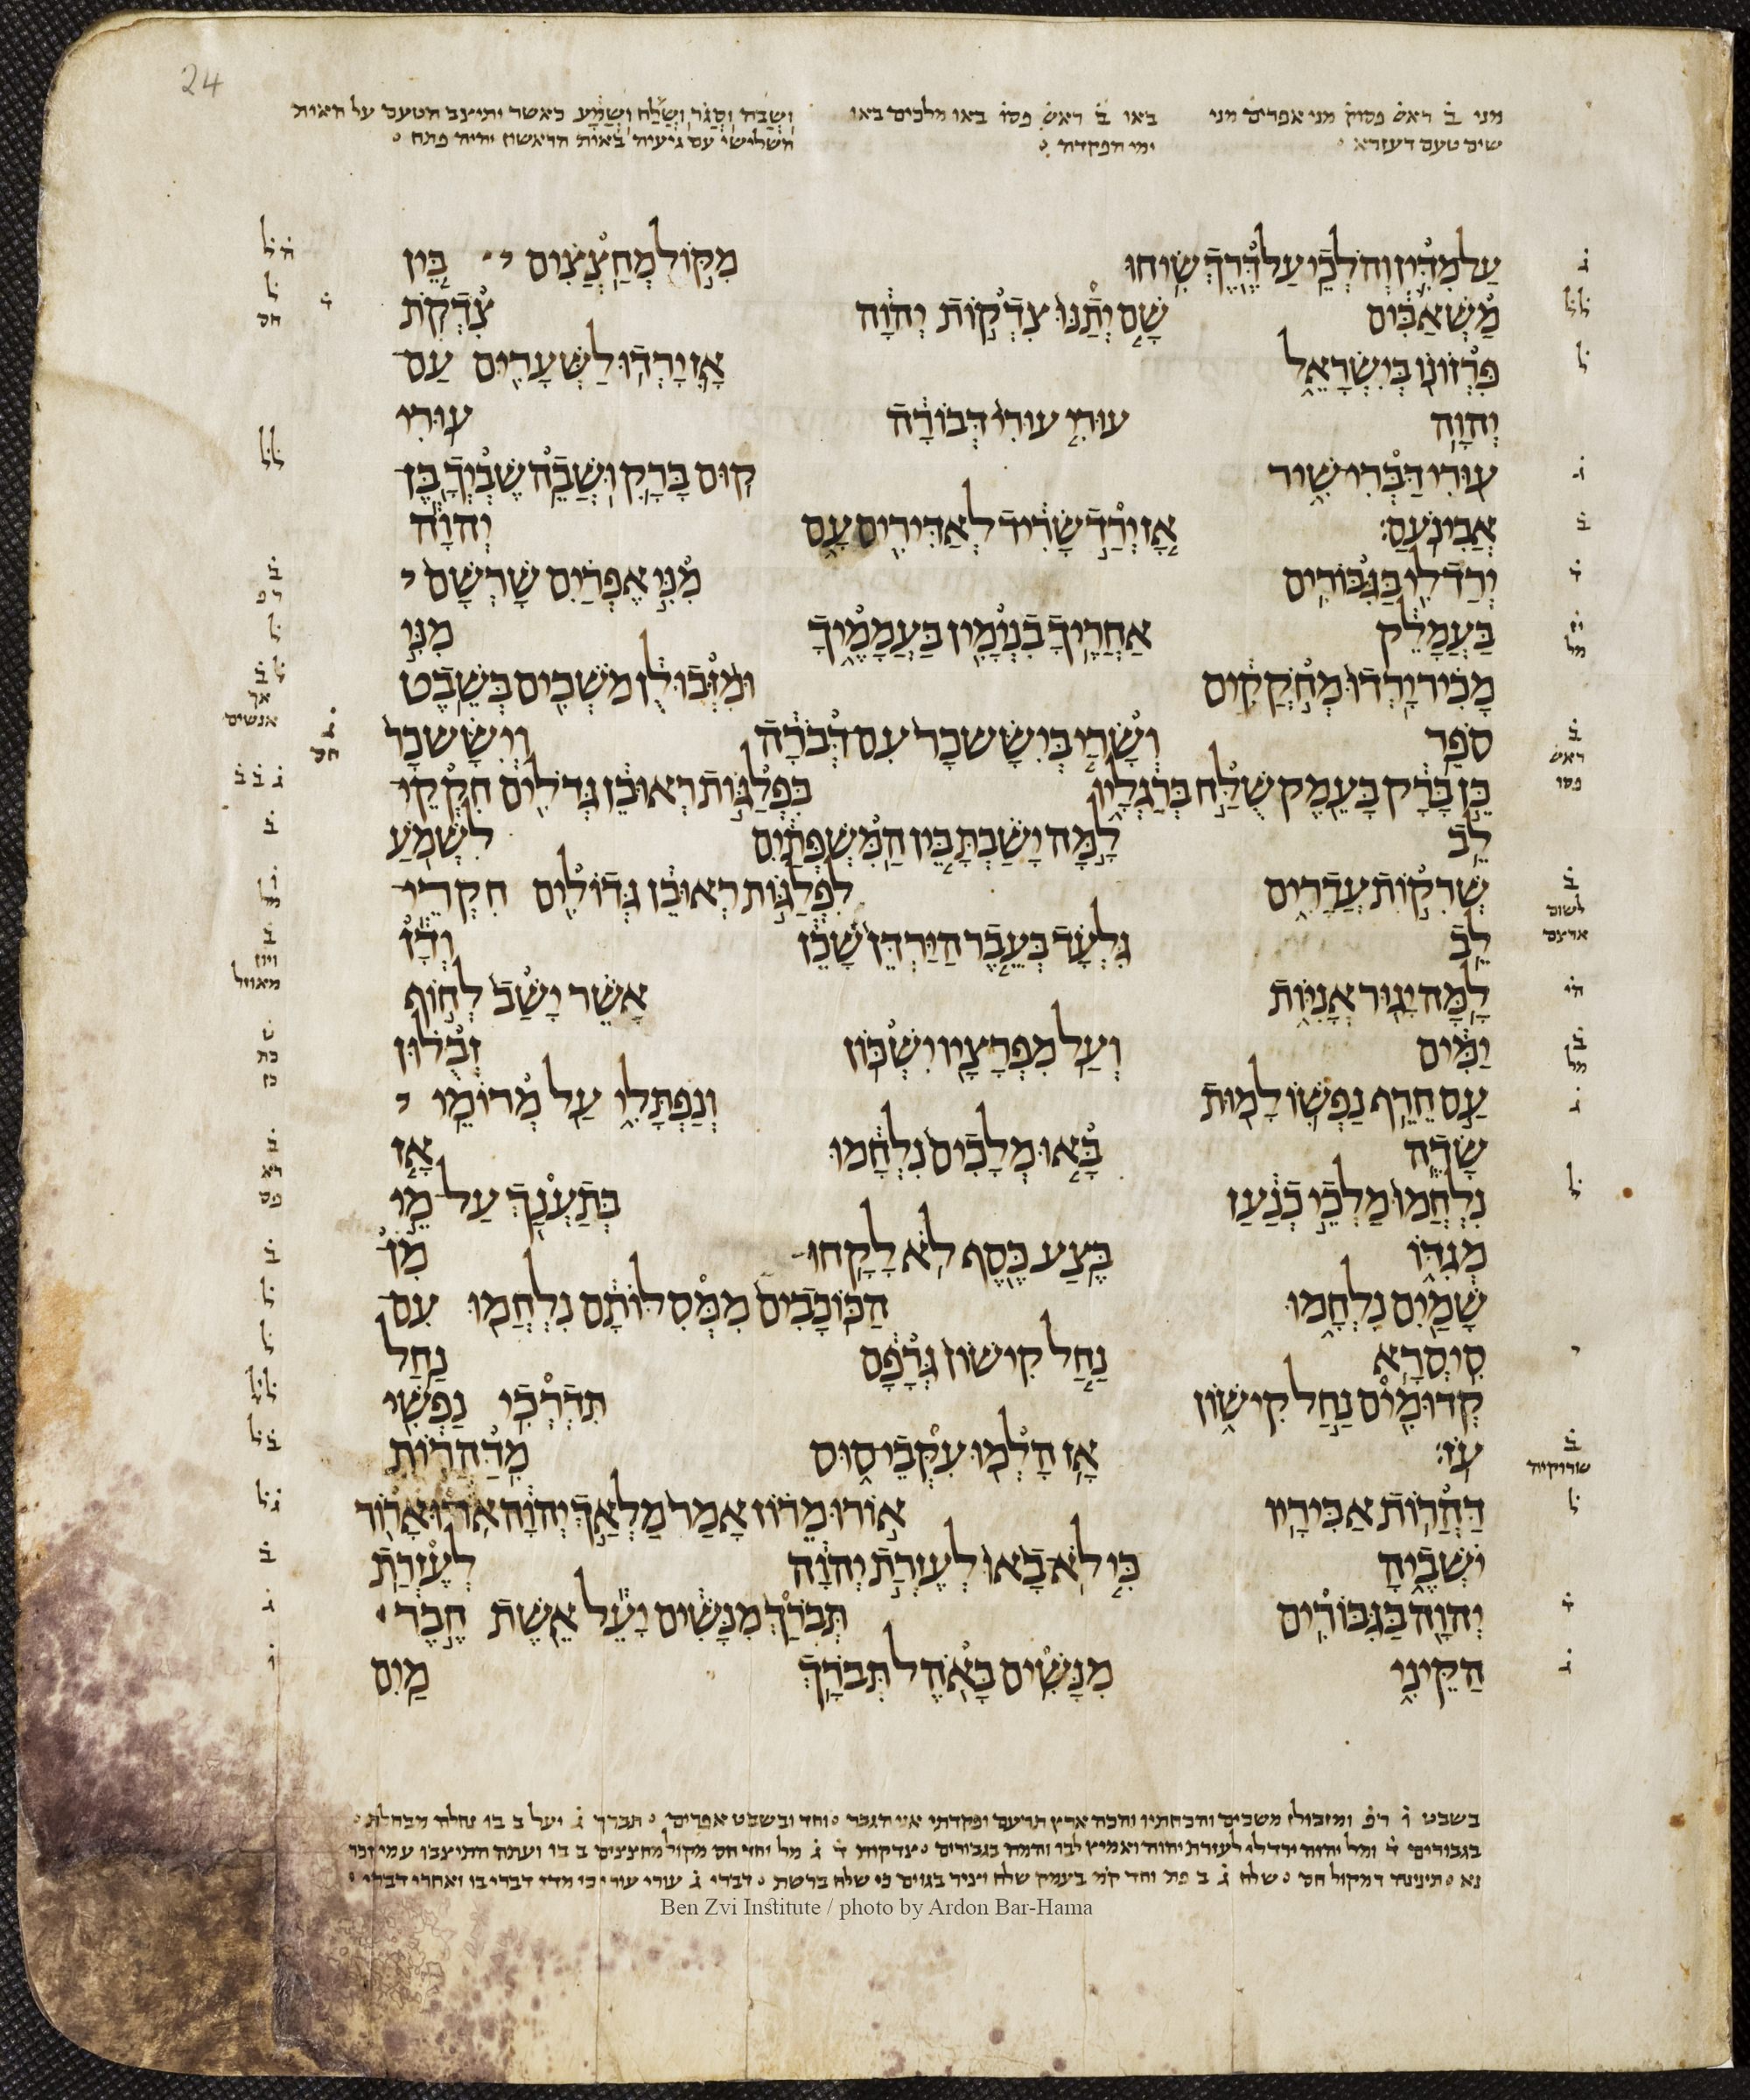 24
מני ב ראש פסוק מני אפרים מני באו ב ראש פסו באו מלכים באו וְשָבָה וְסָגַר וְשָלַח וְשָמַע כאשר יהיה הטעם על האות
שים טעם דעזרא ימי הפקדה השלישי עם געיה באות הראשון יהיה פתח
עַל מִדִּין וְהֹלְכֵי עַל דֶּרֶךְ שִׂיחוּ מִקּוֹל מְחַצְצִים בֵּין
מַשְׁאַבִּים שָׁם יְתַנּוּ צִדְקוֹת יְהוָה צִדְקֹת
פִּרְזוֹנוֹ בְּיִשְׂרָאֵל אָז יָרְדוּ לַשְּׁעָרִים עַם
יְהוָה עוּרִי עוּרִי דְּבוֹרָה עוּרִי
עוּרִי דַּבְּרִי שִׁיר קוּם בָּרָק וּשֲׁבֵה שֶׁבְיְךָ בֶּן
אֲבִינֹעַם׃ אָז יְרַד שָׂרִיד לְאַדִּירִים עָם יְהוָה
יְרַד לִי בַּגִּבּוֹרִים מִנִּי אֶפְרַיִם שָׁרְשָׁם
בַּעֲמָלֵק אַחֲרֶיךָ בִנְיָמִין בַּעֲמָמֶיךָ מִנִּי
מָכִיר יָרְדוּ מְחֹקְקִים וּמִזְּבוּלֻן מֹשְׁכִים בְּשֵׁבֶט
סֹפֵר וְשָׂרַי בְּיִשָּׂשכָר עִם דְּבֹרָה וְיִשָּׂשכָר
כֵּן בָּרָק בָּעֵמֶק שֻׁלַּח בְּרַגְלָיו בִּפְלַגּוֹת רְאוּבֵן גְּדֹלִים חִקְקֵי
לֵב לָמָּה יָשַׁבְתָּ בֵּין הַמִּשְׁפְּתַיִם לִשְׁמֹעַ
שְׁרִקוֹת עֲדָרִים לִפְלַגּוֹת רְאוּבֵן גְּדוֹלִים חִקְרֵי
לֵב גִּלְעָד בְּעֵבֶר הַיַּרְדֵּן שָׁכֵן וְדָן
לָמָּה יָגוּר אֳנִיּוֹת אָשֵׁר יָשַׁב לְחוֹף
יַמִּים וְעַל מִפְרָצָיו יִשְׁכּוֹן זְבֻלוּן
עַם חֵרֵף נַפְשׁוֹ לָמוּת וְנַפְתָּלִי עַל מְרוֹמֵי
שָׂדֶה בָּאוּ מְלָכִים נִלְחָמוּ אָז
נִלְחֲמוּ מַלְכֵי כְנַעַן בְּתַעְנַךְ עַל מֵי
מְגִדּוֹ בֶּצַע כֶּסֶף לֹא לָקָחוּ מִן
שָׁמַיִם נִלְחָמוּ הַכּוֹכָבִים מִמְּסִלּוֹתָם נִלְחֲמוּ עִם
סִיסְרָא נַחַל קִישׁוֹן גְּרָפָם נַחַל
קְדוּמִים נַחַל קִישׁוֹן תִּדְרְכִי נַפְשִׁי
עֹז׃ אָז הָלְמוּ עִקְּבֵי סוּס מִדַּהֲרוֹת
דַּהֲרוֹת אַבִּירָיו אוֹרוּ מֵרוֹז אָמַר מַלְאַךְ יְהוָה אֹרוּ אָרוֹר
יֹשְׁבֶיהָ כִּי לֹא בָאוּ לְעֶזְרַת יְהוָה לְעֶזְרַת
יְהוָה בַּגִּבּוֹרִים תְּבֹרַךְ מִנָּשִׁים יָעֵל אֵשֶׁת חֶבֶר
הַקֵּינִי מִנָּשִׁים בָּאֹהֶל תְּבֹרָךְ מַיִם
בשבט ו רפ ומזבולן משכים והכחתיו והכה ארץ תרעם ופקדתי אני הגבר וחד ובשבט אפרים תברך ג יעל ב בו נחלה מבחלת
בגבורים ד ומל יהוה ירד לי לעזרת יהוה ואמיץ לבו והמה בגבורים צדקות ד ג מל וחד חס מקול מחצצים ב בו ועתה התיצבו
נא תינינה דמקול חס שלח ג ב פת וחד קמ בעמק שלח ויניד בגוים כי שלח ברשת דברי ג עורי עורי כי מדי דברי בו ואחרי דברי
Ben Zvi Institute / photo by Ardon Bar-Hama